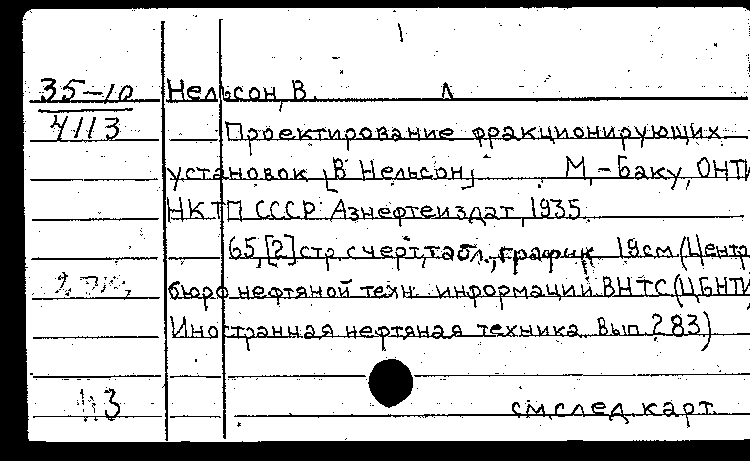 35-10
4113
Нельсон, В. Л
Проектирование фракционирующих
установок [В Нельсон] М,-Баку, ОНТИ
НКТП СССР Азнефтеиздат, 1935.
65,[2]стр. с черт, табл., график 19см (Центр
бюро нефтяной техн. информации ВНТС (ЦБНТИ
Иностранная нефтяная техника Вып. 283)
3
см.след. карт.